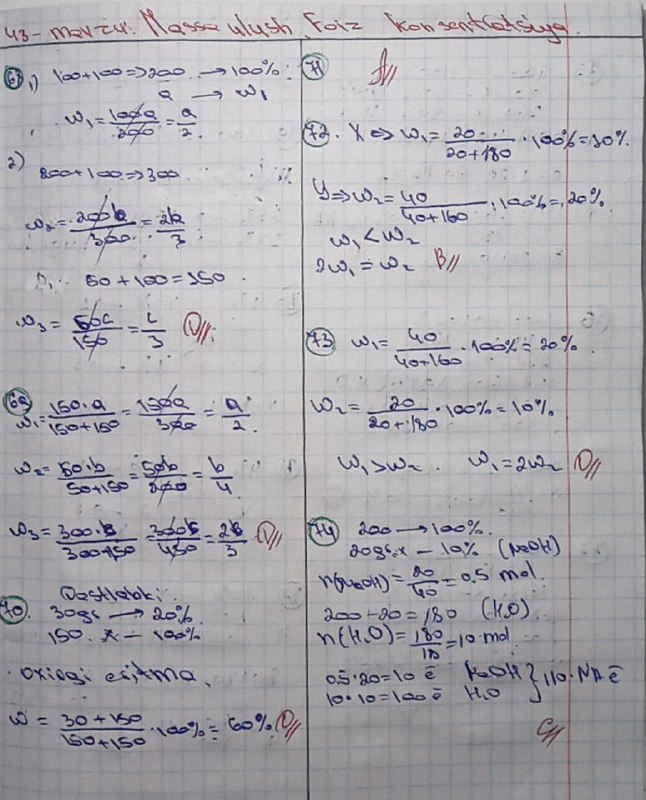 43-mavzu. Massa ulush Foiz konsentratsiya.
68 1) 100+100=>200 → 100%
a → w₁
w₁ = 100a/200 = a/2
2) 200+100=>300
w₂ = 200b/300 = 2b/3
50+100=150
w₃ = 50c/150 = c/3 D//
69
w₁ = 150·a/150+150 = 150a/300 = a/2
w₂ = 50·b/50+150 = 50b/200 = b/4
w₃ = 300·c/300+150 = 300c/450 = 2c/3 D//
Dastlabki
70. 30gr → 20%
150. x – 100%
oxirgi eritma
w = 30+150/150+150 · 100% = 60% D//
71 A//
72. X => w₁ = 20/20+180 · 100% = 10%
Y => w₂ = 40/40+160 · 100% = 20%
w₁ < w₂
2w₁ = w₂ B//
73 w₁ = 40/40+160 · 100% = 20%
w₂ = 20/20+180 · 100% = 10%
w₁ > w₂ w₁ = 2w₂ D//
74 200 → 100%
20gr.x – 10% (NaOH)
n(NaOH) = 20/40 = 0.5 mol
200–20 = 180 (H₂O)
n(H₂O) = 180/18 = 10 mol
0.5·20 = 10 ē NaOH } 110·NA ē
10·10 = 100 ē H₂O
C//